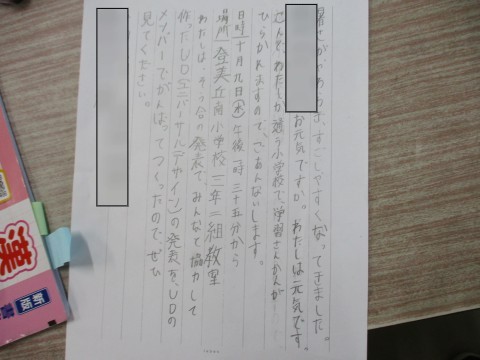 暑さがか すごしやすくなってきました。
お元気ですか。わたしは元気です。
さて、わたしが通う小学校で、学習さんかんが
ひらかれますので、ごあんないします。
日時 十月九日(水)午後 時三十五分から
場所 登美丘南小学校 三年二組教室
わたしは、そう合の発表で、みんなで協力して
作ったUD(ユニバーサルデザイン)の発表を、UDの
メンバーでがんばってつくったので、ぜひ
見てください。
漢
新版